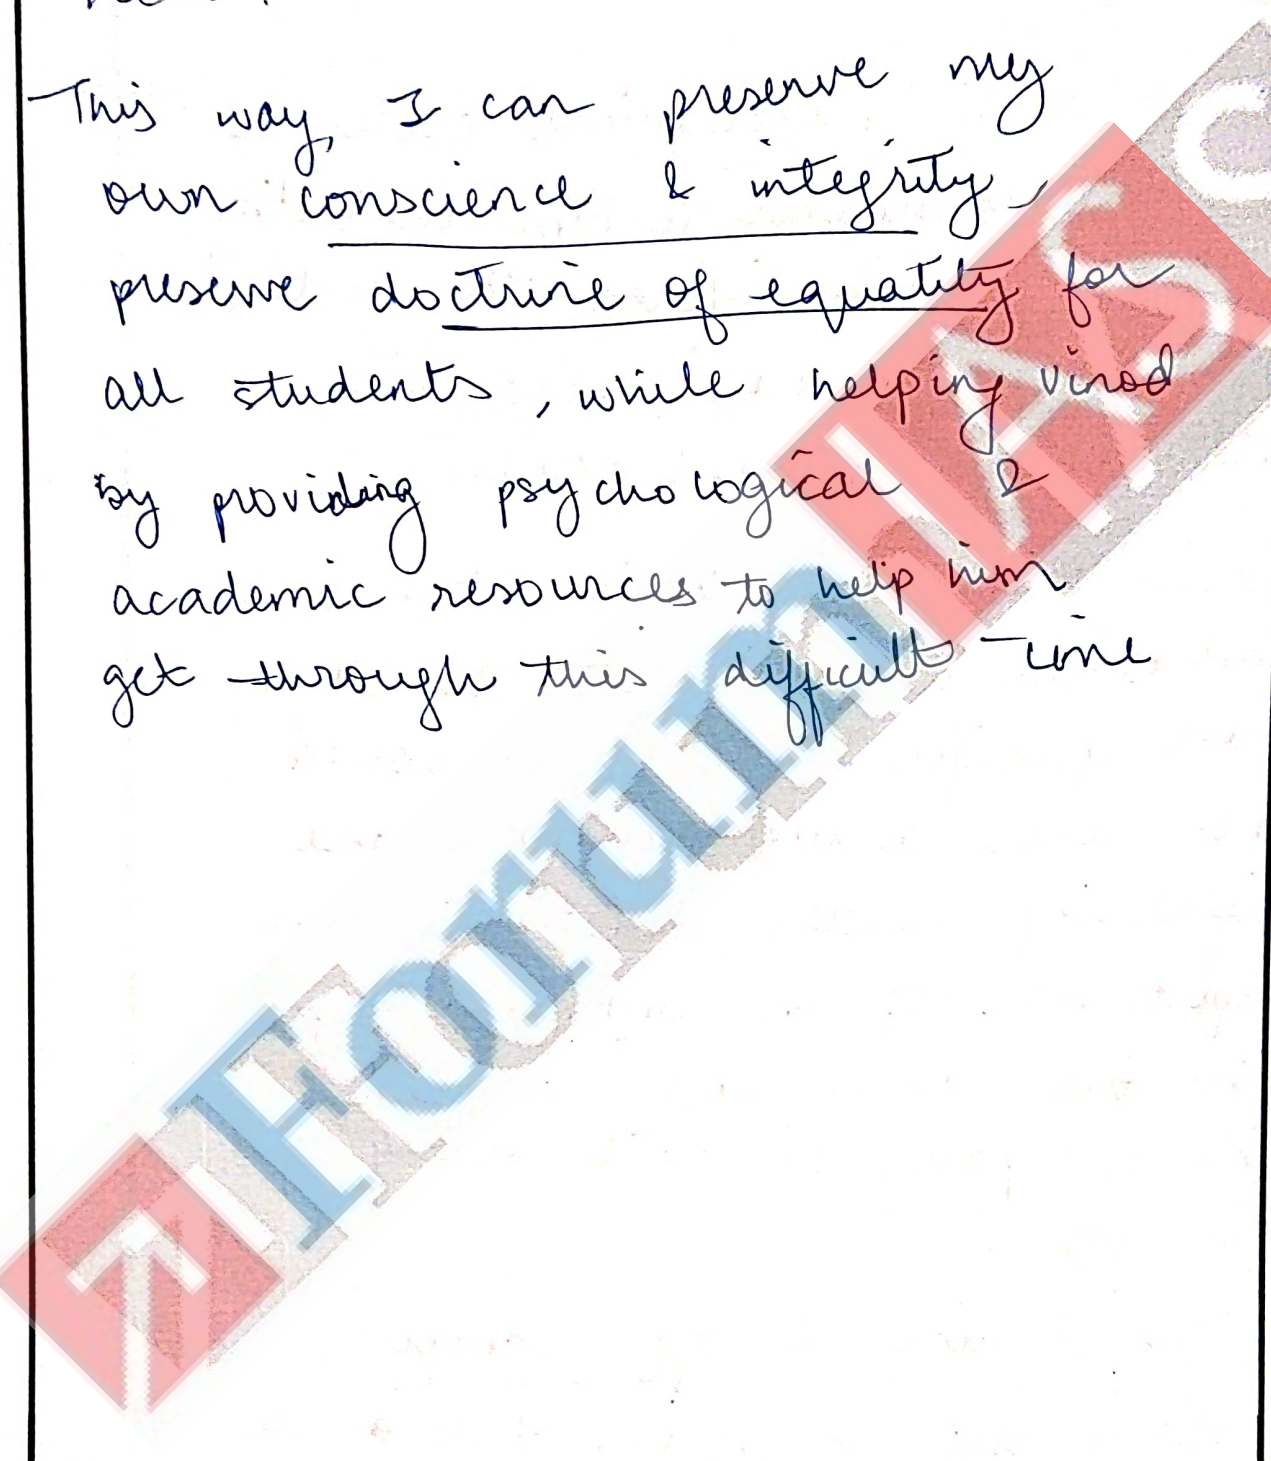 This way, I can preserve my
own conscience & integrity,
preserve doctrine of equality for
all students, while helping vinod
by providing psychological &
academic resources to help him
get through this difficult time
Forum IAS